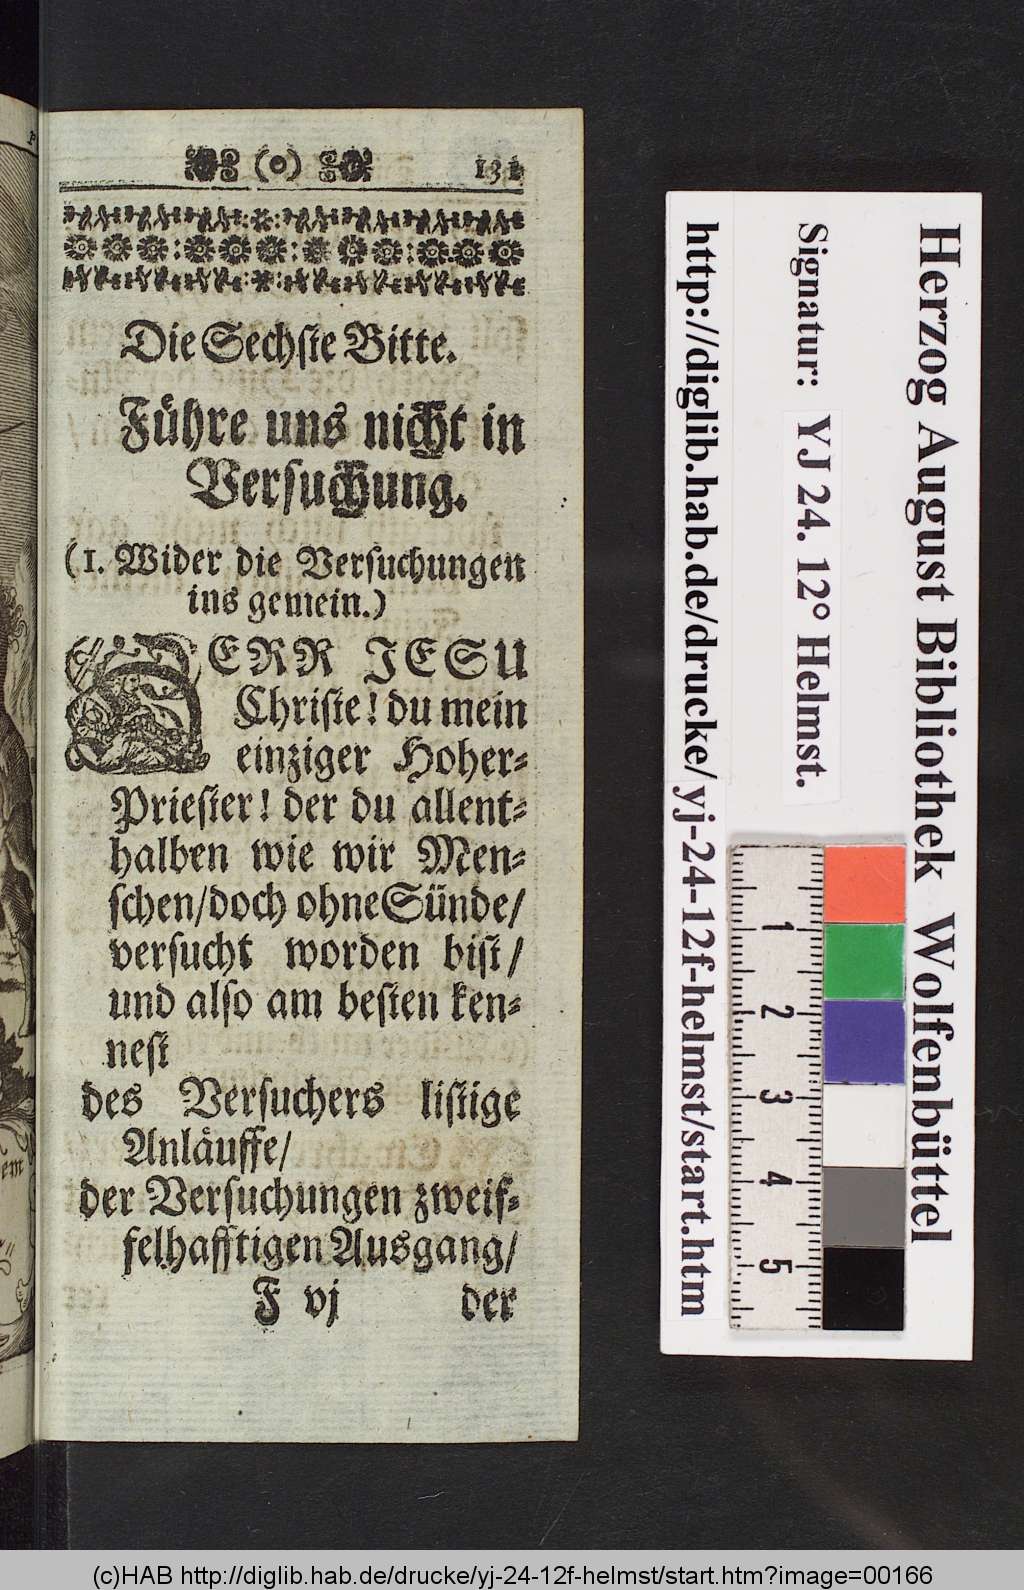 (o) 131
Die Sechste Bitte.
Führe uns nicht in
Versuchung.
(1. Wider die Versuchungen
ins gemein.)
HERR JESU
Christe! du mein
einziger Hoher-
Priester! der du allent-
halben wie wir Men-
schen/doch ohne Sünde/
versucht worden bist/
und also am besten ken-
nest
des Versuchers listige
Anläuffe/
der Versuchungen zweif-
felhafftigen Ausgang/
F vj der
Herzog August Bibliothek Wolfenbüttel
Signatur: YJ 24. 12° Helmst.
http://diglib.hab.de/drucke/yj-24-12f-helmst/start.htm
1
2
3
4
5
(c)HAB http://diglib.hab.de/drucke/yj-24-12f-helmst/start.htm?image=00166